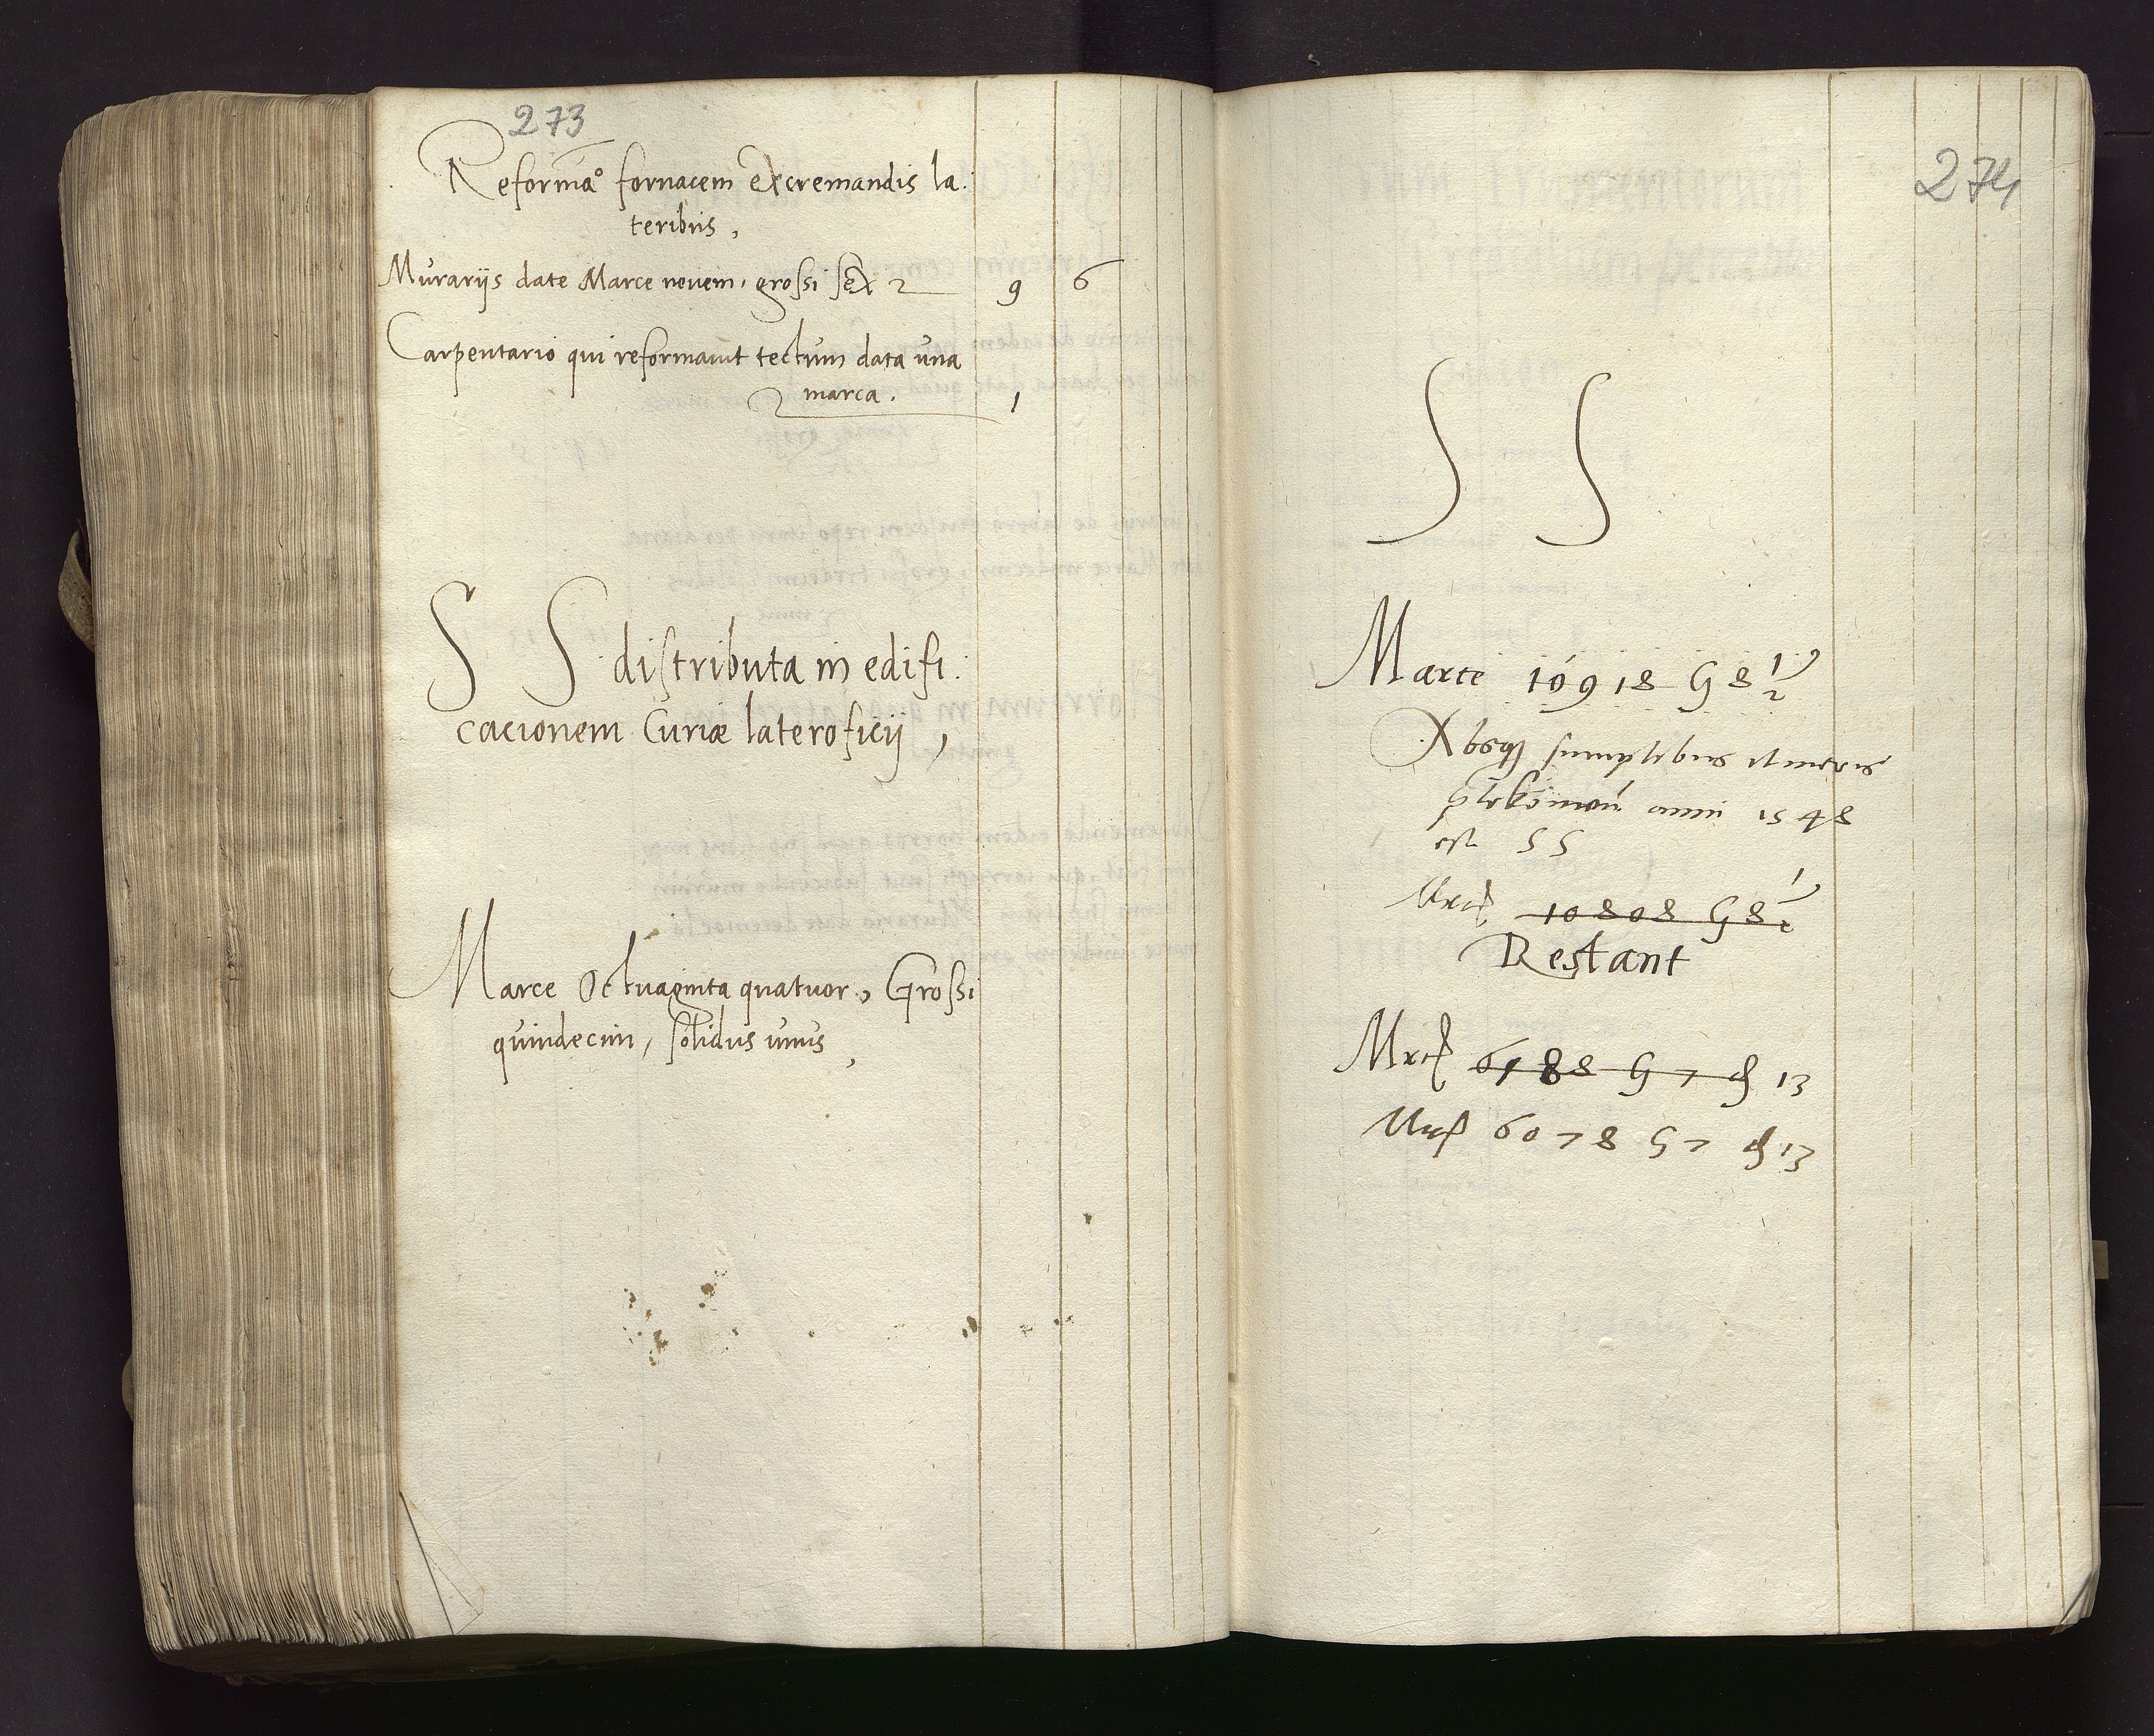 273
Reforma° fornacem excremandis la.
teribus,
Murariis date Marce novem, grossi sex 9 6
Carpentario qui reformavit tectum data una
marca. 1
S S distributa in edifi.
cacionem Curiæ lateroficij,
Marce Octuaginta quatuor, Grossi
quindecim, solidus unus,
274
S S
Marce 10918 G 8 1/2
Absq sumptibus itineris
anni 1548
est SS
Mrc 10808 G 8 1/2
Restant
Mrc 6188 G 7 13
Mrc 6078 G 7 13